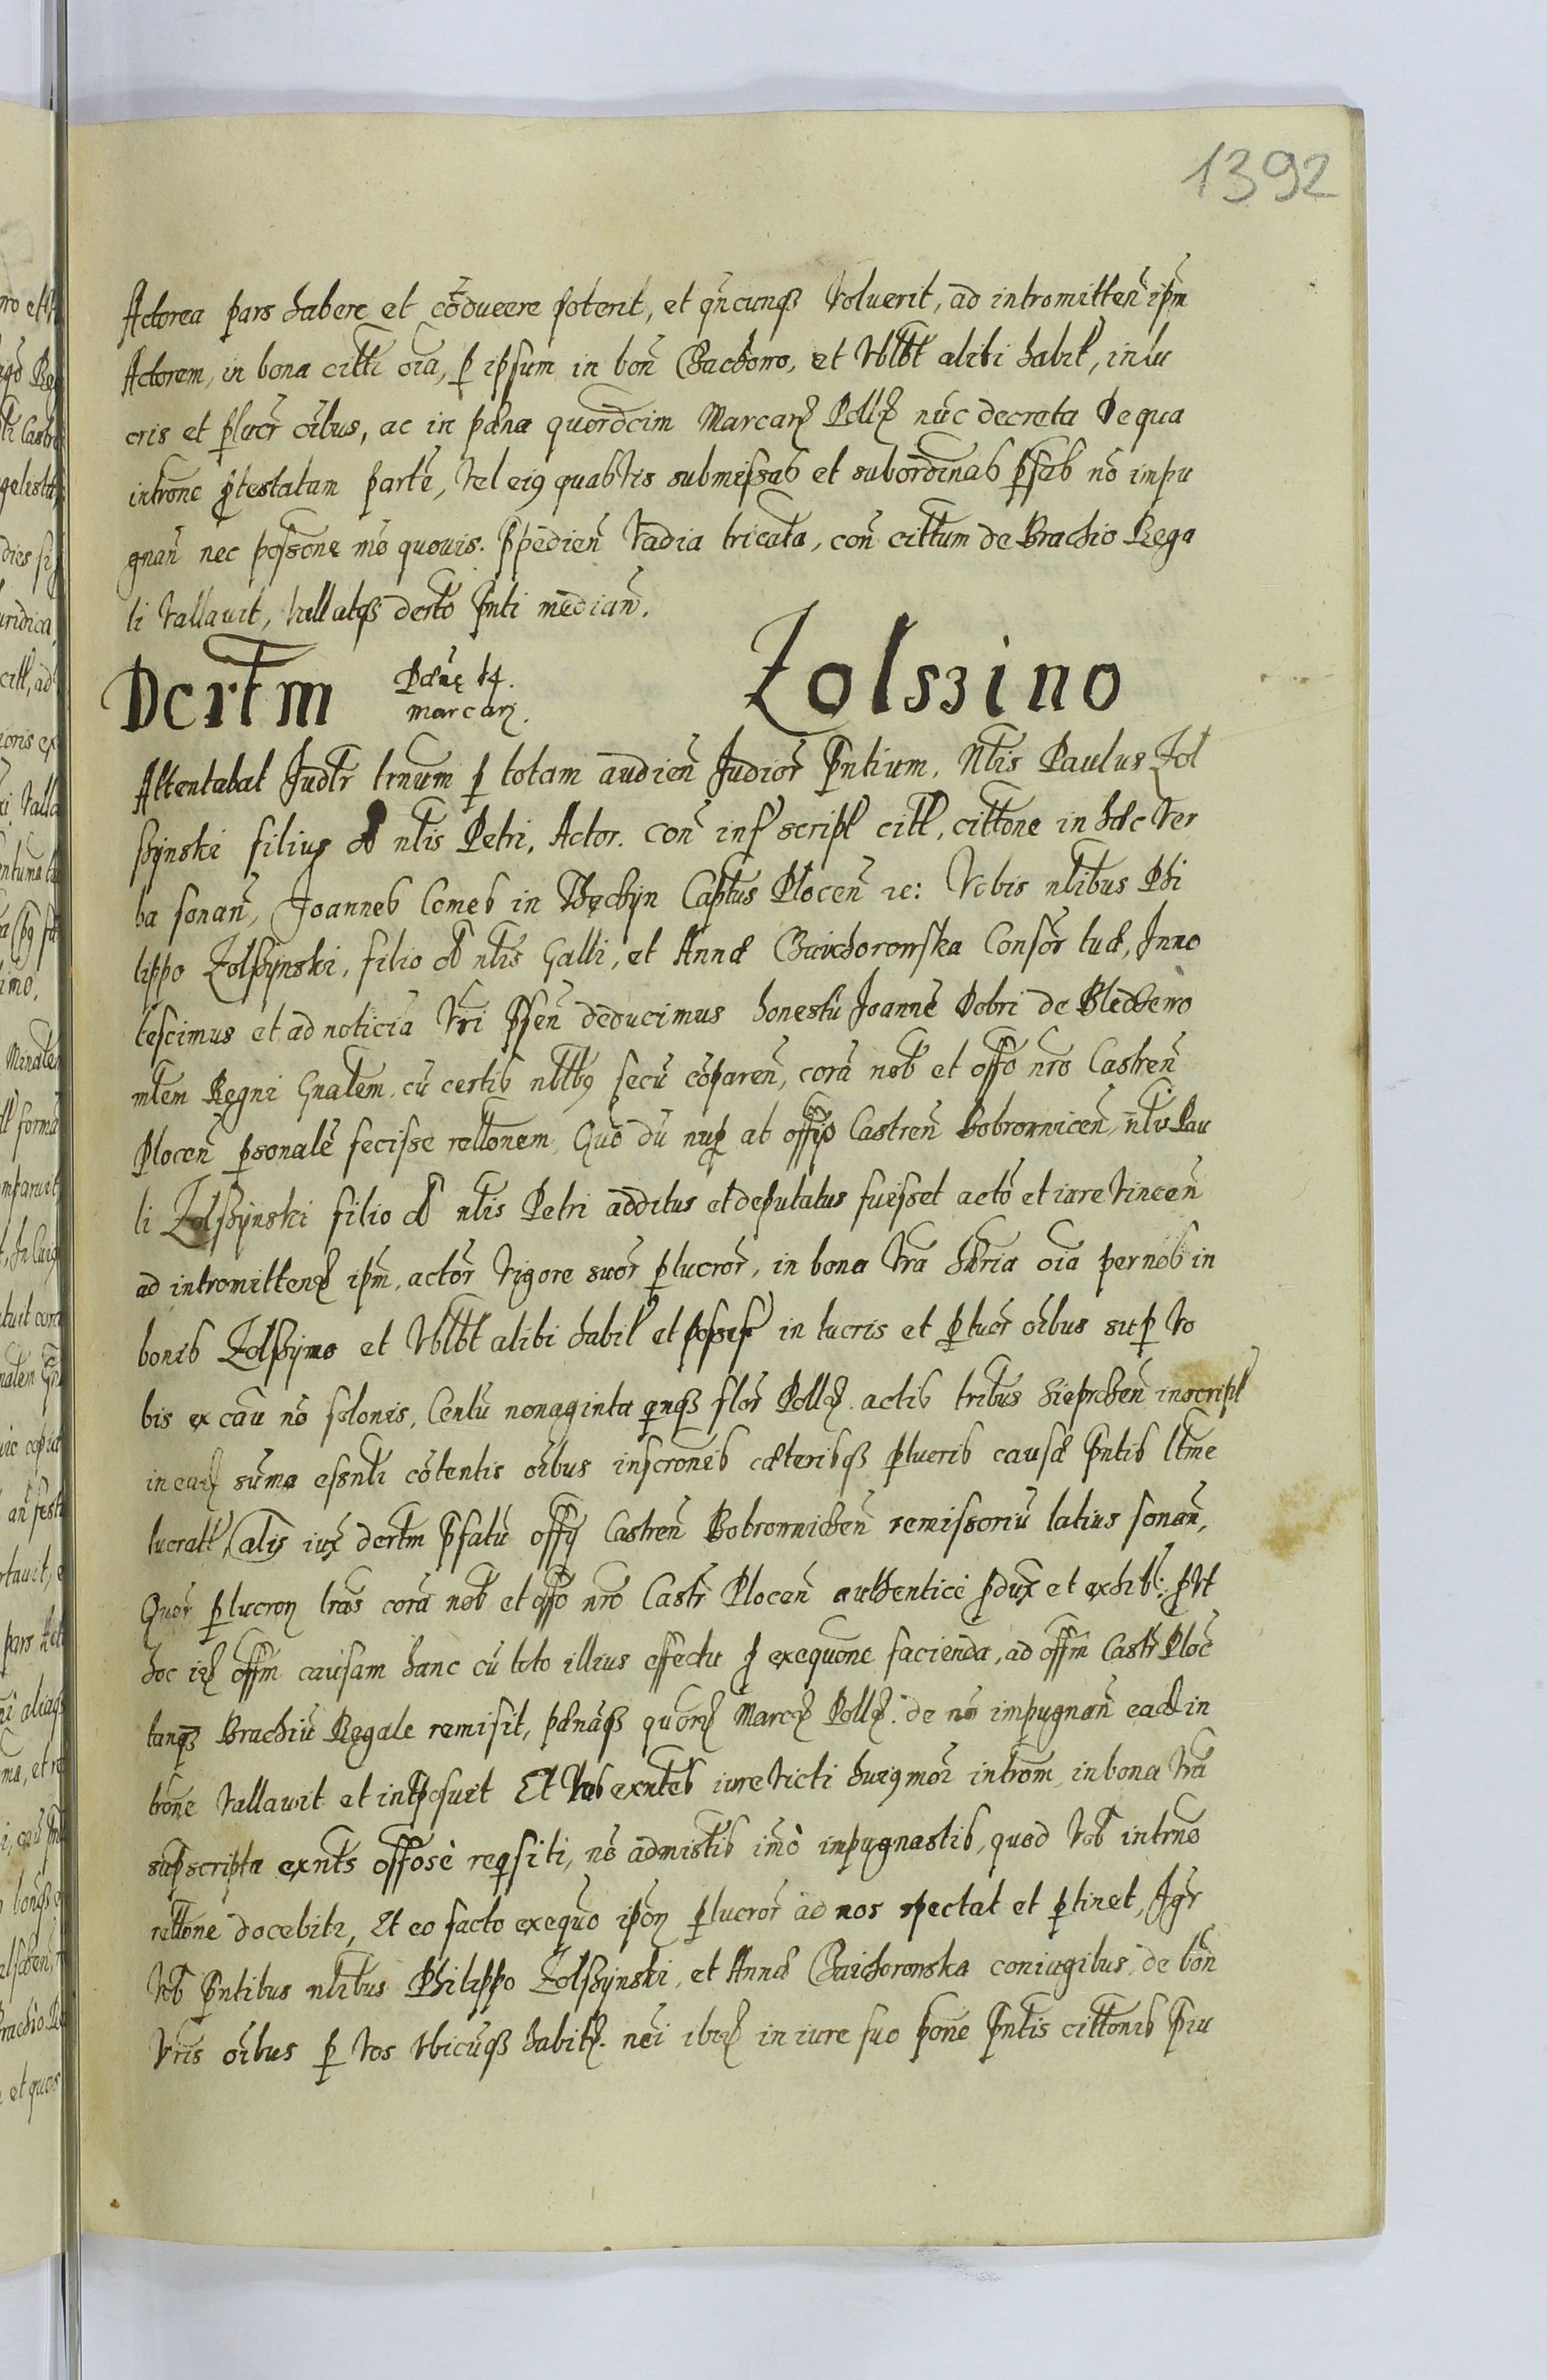 1392
Actorea pars habere et cōducere poterit, et qn̄cunqꝫ voluerit, ad intromitten̄ ipm̄
Actorem, in bona citti oīa, ꝑ ipsum in bon̄ Chachowo, et Vblbt alibi habit, in lu
cris et ꝑlucr oībus, ac in pæna quordcim Marcarꝫ Pollꝫ nūc decreta De qua
introne ꝓtestatam partē, vel eiꝯ quasvis submissas et subordinas ꝑsas nō impu
gnan̄ nec possone mō quouis. Ppēdien̄ Vadia tricata, con̄ cittum de Brachio Rega
li vallavit, vallatqꝫ derto Pn̄ti mēdian̄.
Dcrtm Pænę 14. Zolszino
marcarꝫ.
Attentabat Judtr trnum ꝑ totam audien̄ Judior̄ Pn̄tium, Nt̄lis Paulus Zol
ßynski filiuꝫ ol nt̄lis Petri, Actor. Con̄ inf script citt, cittone in hæc ver
ba sonan̄, Joannes Comes in Thęchyn Captus Plocen̄ ꝛc: Vobis nlibus Phi
lippo Zolßynski, filio ol nt̄lis Galli, et Annæ Chaichorowska Consor̄ tuæ, Inno
tescimus et ad noticiā Vr̄i Pſen̄ deducimus honestū Joannē Dobri de Blichowo
mlem Regni Gn̄alem, cū certis nltbꝯ secū cōparen̄, corā nob et offo nro Castren̄
Plocen̄ ꝑsonalē fecisse rellonem, Quō dū nuꝑ ab offīo Castren̄ Bobrownicen̄, nt̄lis Pau
li Zolßynski filio ol nt̄lis Petri additus et deputatus fuisset acto et iure vincen̄
ad intromittendꝫ ipm̄, actor̄ vigore suor̄ ꝑlucror̄, in bona vrā hæria oīa per nos in
bonis Zolßyno et Vblbt alibi habit et posseſ in lucris et ꝑlucr oībus suꝑ vo
bis ex cau nō solonis, Centū nonaginta qnqꝫ flor̄ Pollꝫ actis tribus Sieprchen̄ inscript
in eadꝫ sūma essnti cōtentis oībus inscronis cæterisqꝫ ꝑlucris causæ Pn̄tis ltme
lucratt, alīs iuꝫ dertm pſatū offy Castren̄ Bobrownichen̄ remissoriū latius sonan̄,
Quor̄ ꝑlucroꝝ lrās corā nob et offo nro Castr̄ Plocen̄ authenticè ꝓdux et exhib: ꝓut
hoc idꝫ offm causam hanc cū toto illius effectu ꝓ exequone facienda, ad offm Castr̄ Ploc̄
tanqꝫ Brachiū Regale remisit, pænāqꝫ quorꝫ Marcꝫ Pollꝫ de nō impugnan̄ eadꝫ in
trone vallauit et intꝑosuit Et Vos exn̄tes iure victi huiꝯmoi introm̄ in bona vrā
supscripta exn̄ts offosè reqsiti, nō admistis imò impugnastis, quod vob introne
rellone docebitr, Et eo facto exequo ipōꝝ ꝑlucror̄ ad nos spectat et ꝑtinet, Igr̄
Vob Pn̄tibus nlibus Philippo Zolßynski, et Annæ Chaichorowska coniugibus, de bon̄
Vris oībus ꝑ vos vbicūqꝫ habitꝫ. nei ibidꝫ in iure suo pone Pn̄tis cittonis Pru